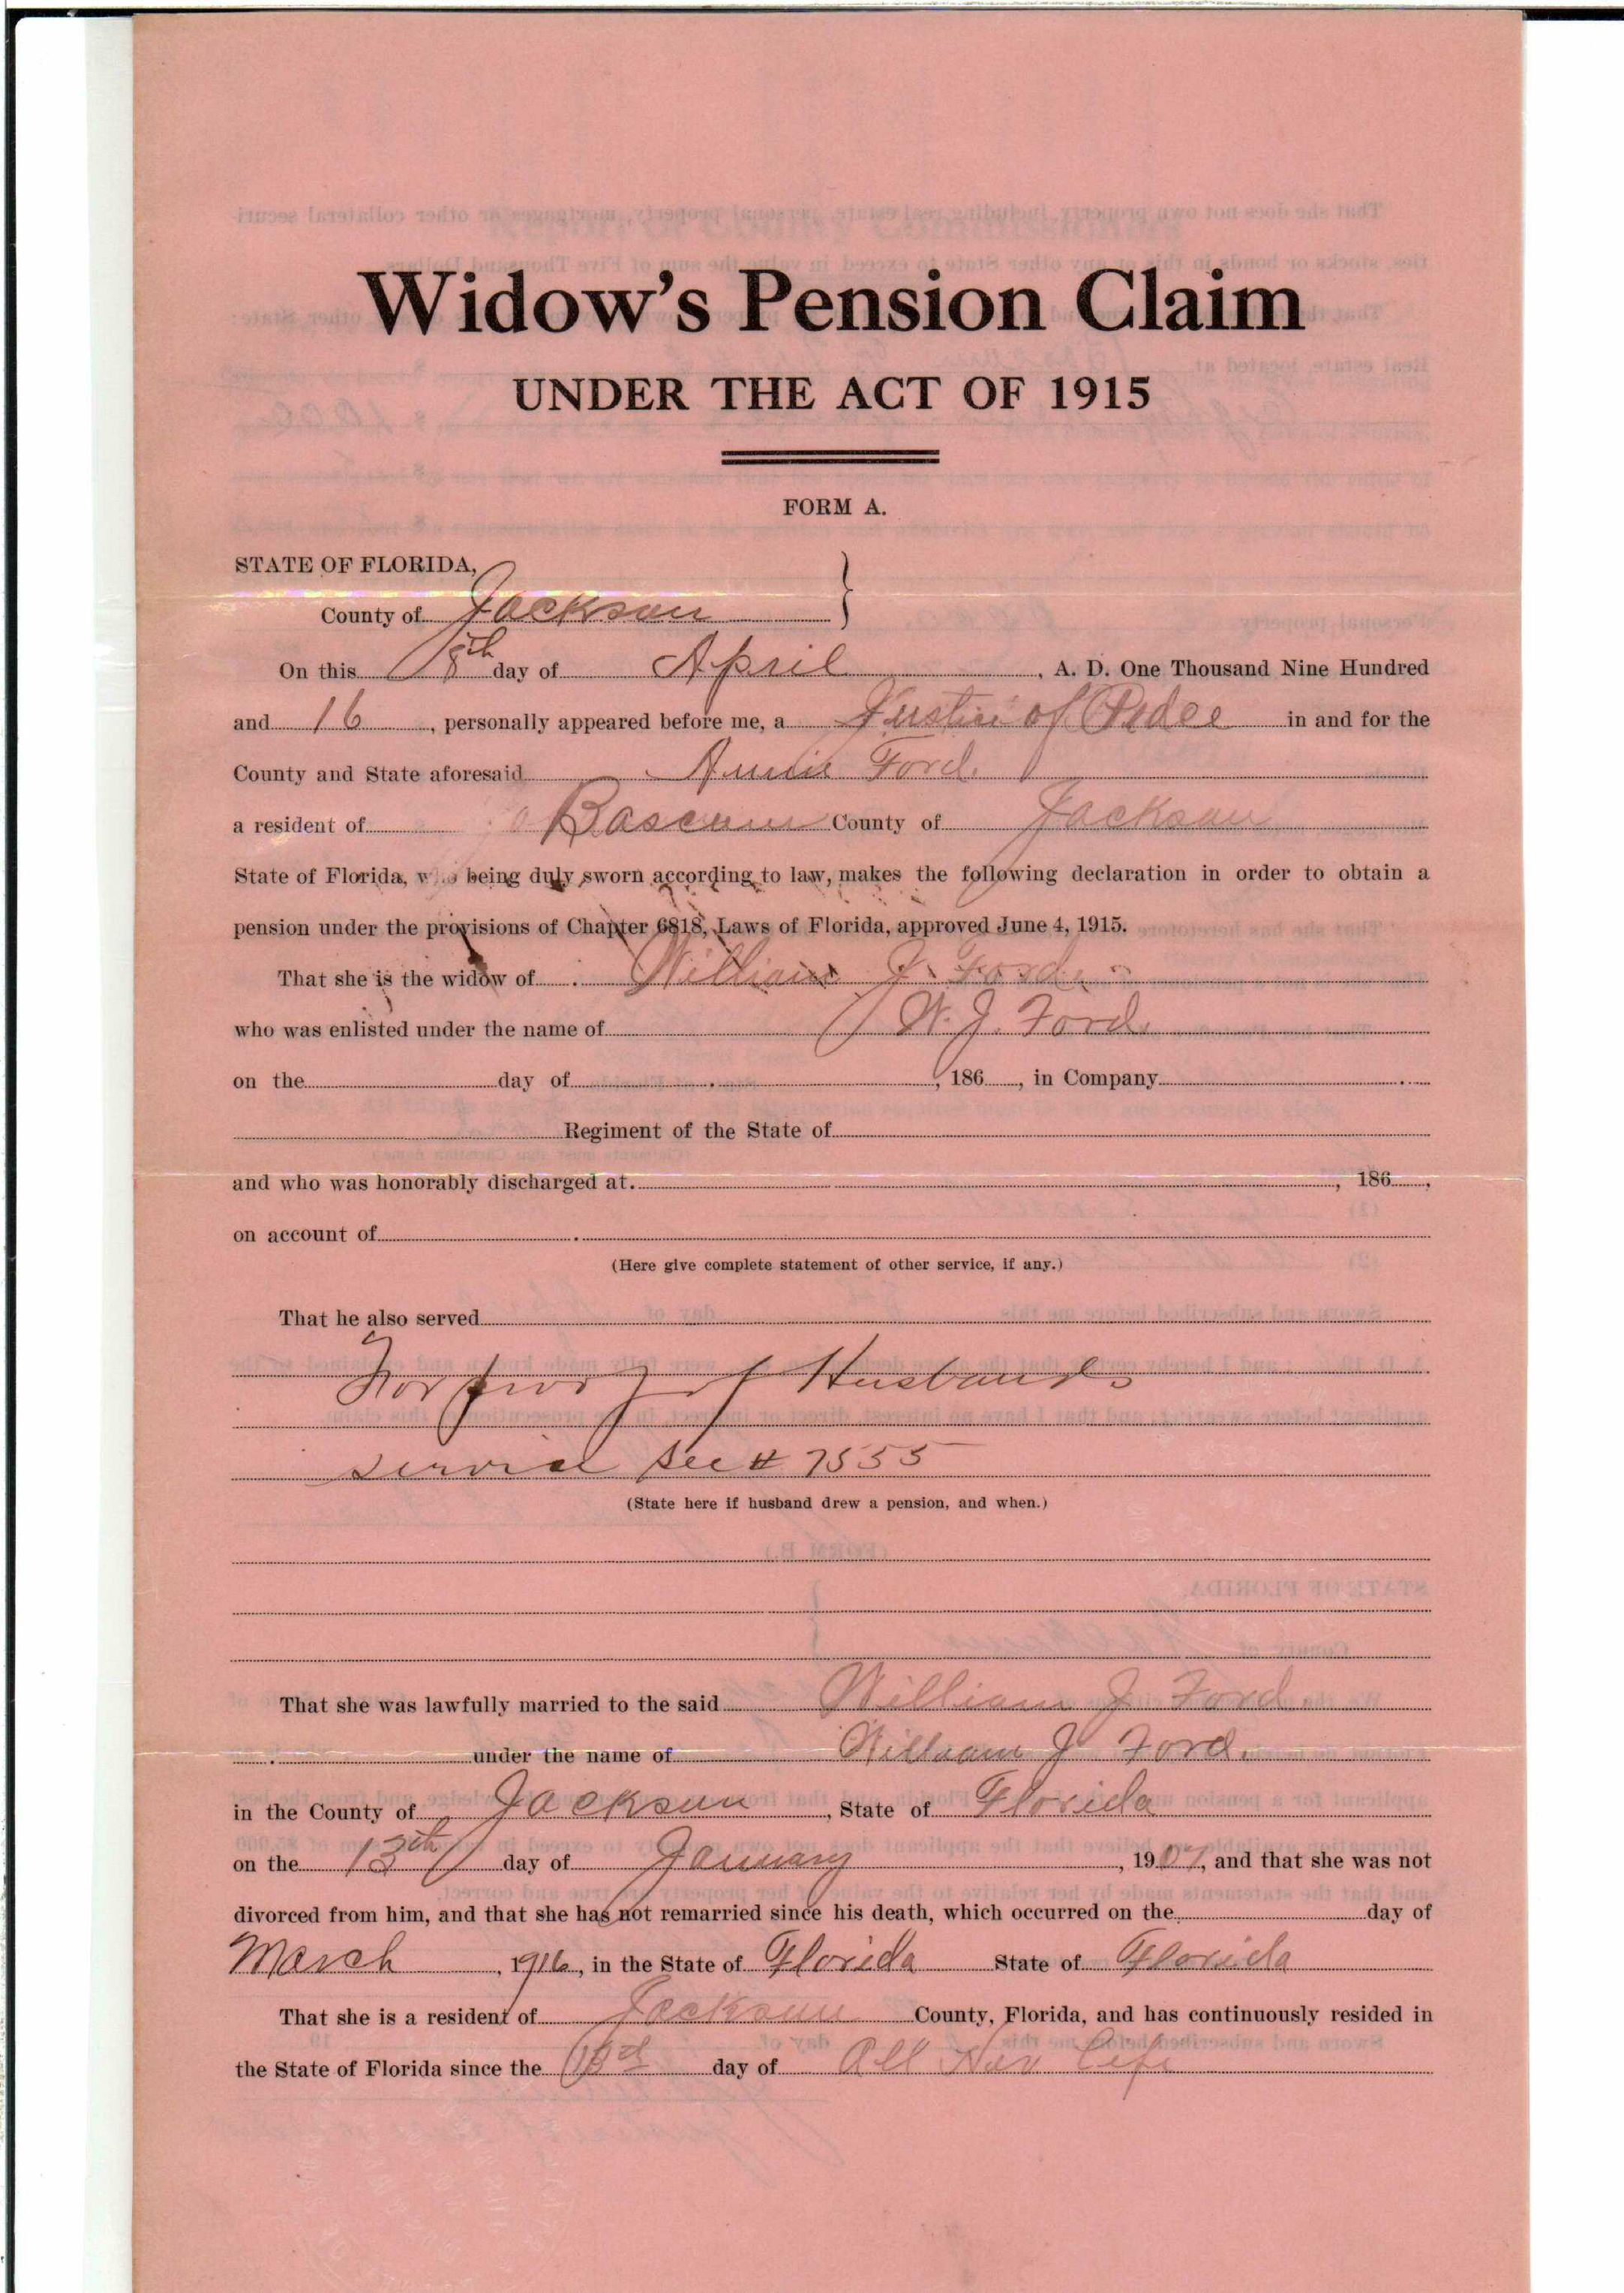 Widow's Pension Claim
UNDER THE ACT OF 1915
FORM A.
STATE OF FLORIDA,
County of Jackson
On this 18th day of April, A. D. One Thousand Nine Hundred
and 16, personally appeared before me, a Justice of Peace in and for the
County and State aforesaid Annie Ford
a resident of Bascum County of Jackson
State of Florida, who being duly sworn according to law, makes the following declaration in order to obtain a
pension under the provisions of Chapter 6818, Laws of Florida, approved June 4, 1915.
That she is the widow of William J. Ford
who was enlisted under the name of W. J. Ford
on the day of , 186 , in Company
Regiment of the State of
and who was honorably discharged at. , 186 ,
on account of
(Here give complete statement of other service, if any.)
That he also served
For proof of Husbands
service see # 7555
(State here if husband drew a pension, and when.)
That she was lawfully married to the said William J Ford
under the name of William J Ford.
in the County of Jackson, State of Florida
on the 13th day of January, 1907, and that she was not
divorced from him, and that she has not remarried since his death, which occurred on the day of
March, 1916, in the State of Florida State of Florida
That she is a resident of Jackson County, Florida, and has continuously resided in
the State of Florida since the day of All Her Life